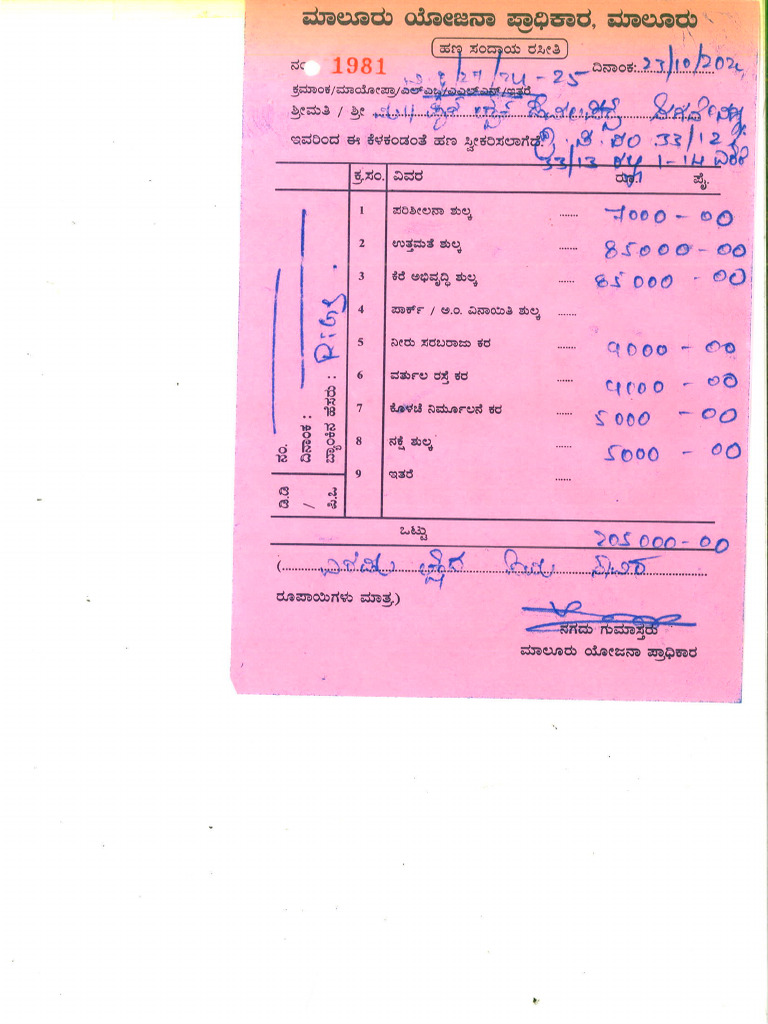 ಮಾಲೂರು ಯೋಜನಾ ಪ್ರಾಧಿಕಾರ, ಮಾಲೂರು
ಹಣ ಸಂದಾಯ ರಸೀತಿ
ನಂ 1981 ದಿನಾಂಕ: 23/10/202
ಕ್ರಮಾಂಕ/ಮಾಯೋಪ್ರಾ/ಎಲ್‌ಎಒ/ಎಎಲ್‌ಎನ್/ಇತರೆ 24-25
ಶ್ರೀಮತಿ / ಶ್ರೀ
ಇವರಿಂದ ಈ ಕೆಳಕಂಡಂತೆ ಹಣ ಸ್ವೀಕರಿಸಲಾಗಿದೆ. 33/12
33/13 1-14 ವರೆಗೆ
ಕ್ರ.ಸಂ. ವಿವರ ರೂ. ಪೈ.
1 ಪರಿಶೀಲನಾ ಶುಲ್ಕ ...... 7000-00
2 ಉತ್ತಮತೆ ಶುಲ್ಕ ...... 85000-00
3 ಕೆರೆ ಅಭಿವೃದ್ಧಿ ಶುಲ್ಕ ...... 85000-00
4 ಪಾರ್ಕ್ / ಅ.ಂ. ವಿನಾಯಿತಿ ಶುಲ್ಕ ......
5 ನೀರು ಸರಬರಾಜು ಕರ ...... 9000-00
6 ವರ್ತುಲ ರಸ್ತೆ ಕರ ...... 9000-00
7 ಕೊಳಚೆ ನಿರ್ಮೂಲನೆ ಕರ ...... 5000-00
8 ನಕ್ಷೆ ಶುಲ್ಕ ...... 5000-00
9 ಇತರೆ ......
ಡಿ.ಡಿ / ಪಿ.ಒ
ನಂ.
ದಿನಾಂಕ :
ಬ್ಯಾಂಕಿನ ಹೆಸರು :
ಒಟ್ಟು 205000-00
(
ರೂಪಾಯಿಗಳು ಮಾತ್ರ.)
ನಗದು ಗುಮಾಸ್ತರು
ಮಾಲೂರು ಯೋಜನಾ ಪ್ರಾಧಿಕಾರ